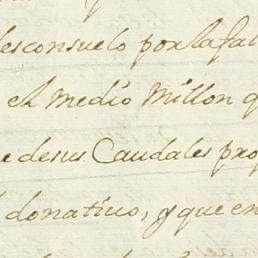 desconsuelo por la fal
el medio Millon q
e de sus Caudales pro
donativo, y que en